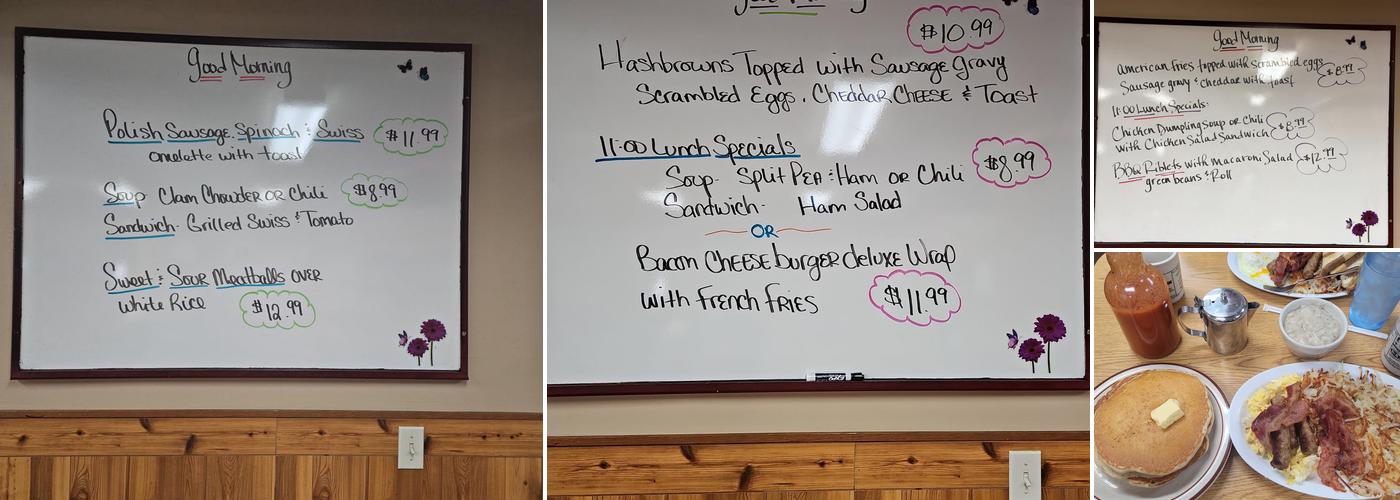 Good Morning
Polish Sausage, Spinach & Swiss $11.99
omelette with toast
Soup Clam Chowder OR Chili $8.99
Sandwich- Grilled Swiss & Tomato
Sweet & Sour Meatballs over
White Rice $12.99
$10.99
Hashbrowns Topped with Sausage Gravy
Scrambled Eggs, Cheddar Cheese & Toast
11:00 Lunch Specials
Soup- Split Pea & Ham or Chili $8.99
Sandwich- Ham Salad
OR
Bacon Cheeseburger deluxe Wrap
with French Fries $11.99
EXPO
Good Morning
American fries topped with scrambled eggs
Sausage gravy & Cheddar with toast $8.99
11:00 Lunch Specials:
Chicken Dumpling soup or Chili $8.99
with Chicken Salad Sandwich
BBQ Riblets with macaroni Salad $12.99
green beans & Roll